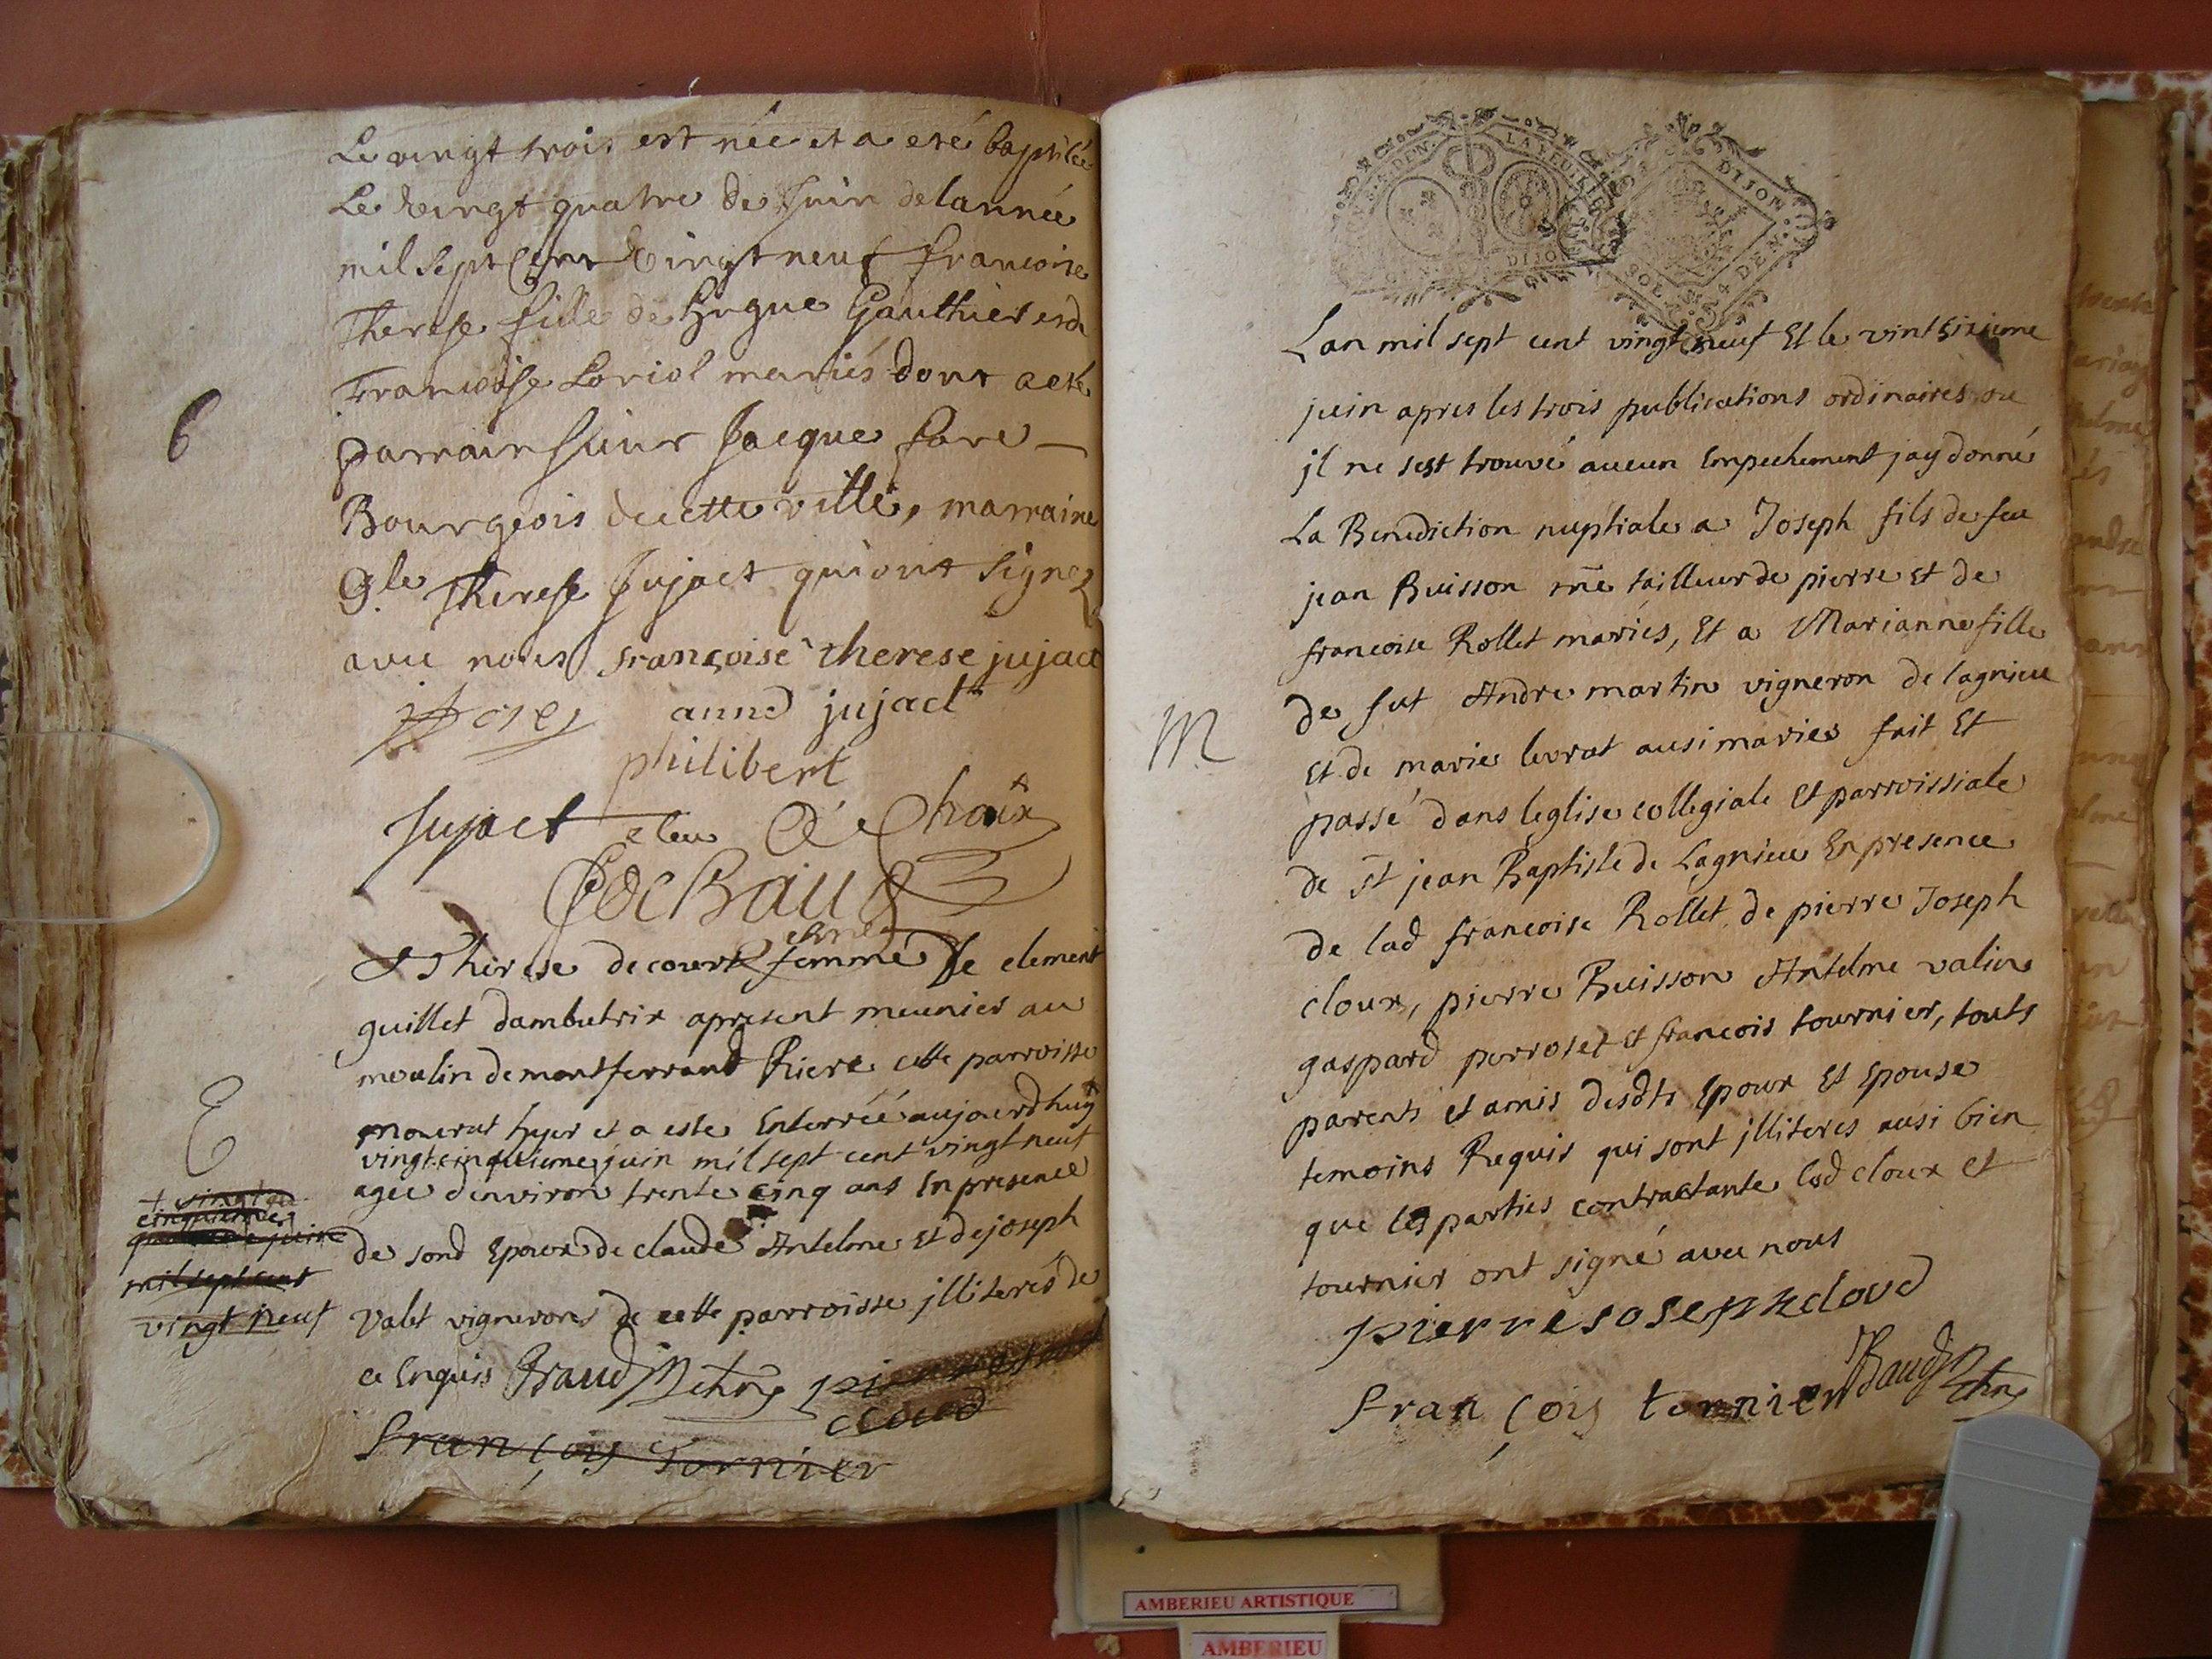 Le vingt trois est née et a eté baptisée
Le vingt quatre de Juin de lannée
mil sept Cent Vingt neuf francoise
Therese fille de Hugue Gauthier et de
Francoise Loriol mariés dont acte
6
parrain sieur Jacque fave
Bourgeois de cette ville, marraine
Therese Jujact qui ont signez
avec nous françoise therese jujact
anne jujact
philibert
Jujact eleu
Therese decourt femme de clement
guillet dambutrix apresent meunier au
moulin de montferrand Riere cette parroisse
mourut hyer et a esté Enterréé aujourdhuy +
E
vingt cinquieme juin mil sept cent vingt neuf
ageé denviron trente cinq ans En presence
+ vingt
cinquieme
juin
mil sept cent
vingt neuf
de sond Epoux de claude Antelme Et de joseph
Valet vignerons de cette parroisse jlliterés de
ce Enquis
cloud
François Tornier
LAYEUILLE
DIJON
DIJON
SOL
4 DEN.
Lan mil sept cent vingt neuf Et le vint sixieme
juin apres les trois publications ordinaires ou
jl ne sest trouvé aucun Empechement jay donné
La Benediction nuptiale a Joseph fils de feu
jean Buisson me tailleur de pierre et de
francoise Rollet mariés, Et a Marianne fille
de fut Andre martin vigneron de lagnieu
M
et de marie levrat ausi mariés fait Et
passé dans leglise collegiale et parroissiale
de St jean Baptiste de Lagnieu En presence
de lad francoise Rollet de pierre Joseph
cloux, pierre Buisson Antelme valin
gaspard perroset et francois tournier, touts
parents et amis desdts Epoux et Epouse
temoins Requis qui sont jlliteres ausi bien
que les parties contractante led cloux et
tournier ont signé avec nous
pierre josephcloud
François tornier
AMBERIEU ARTISTIQUE
AMBERIEU